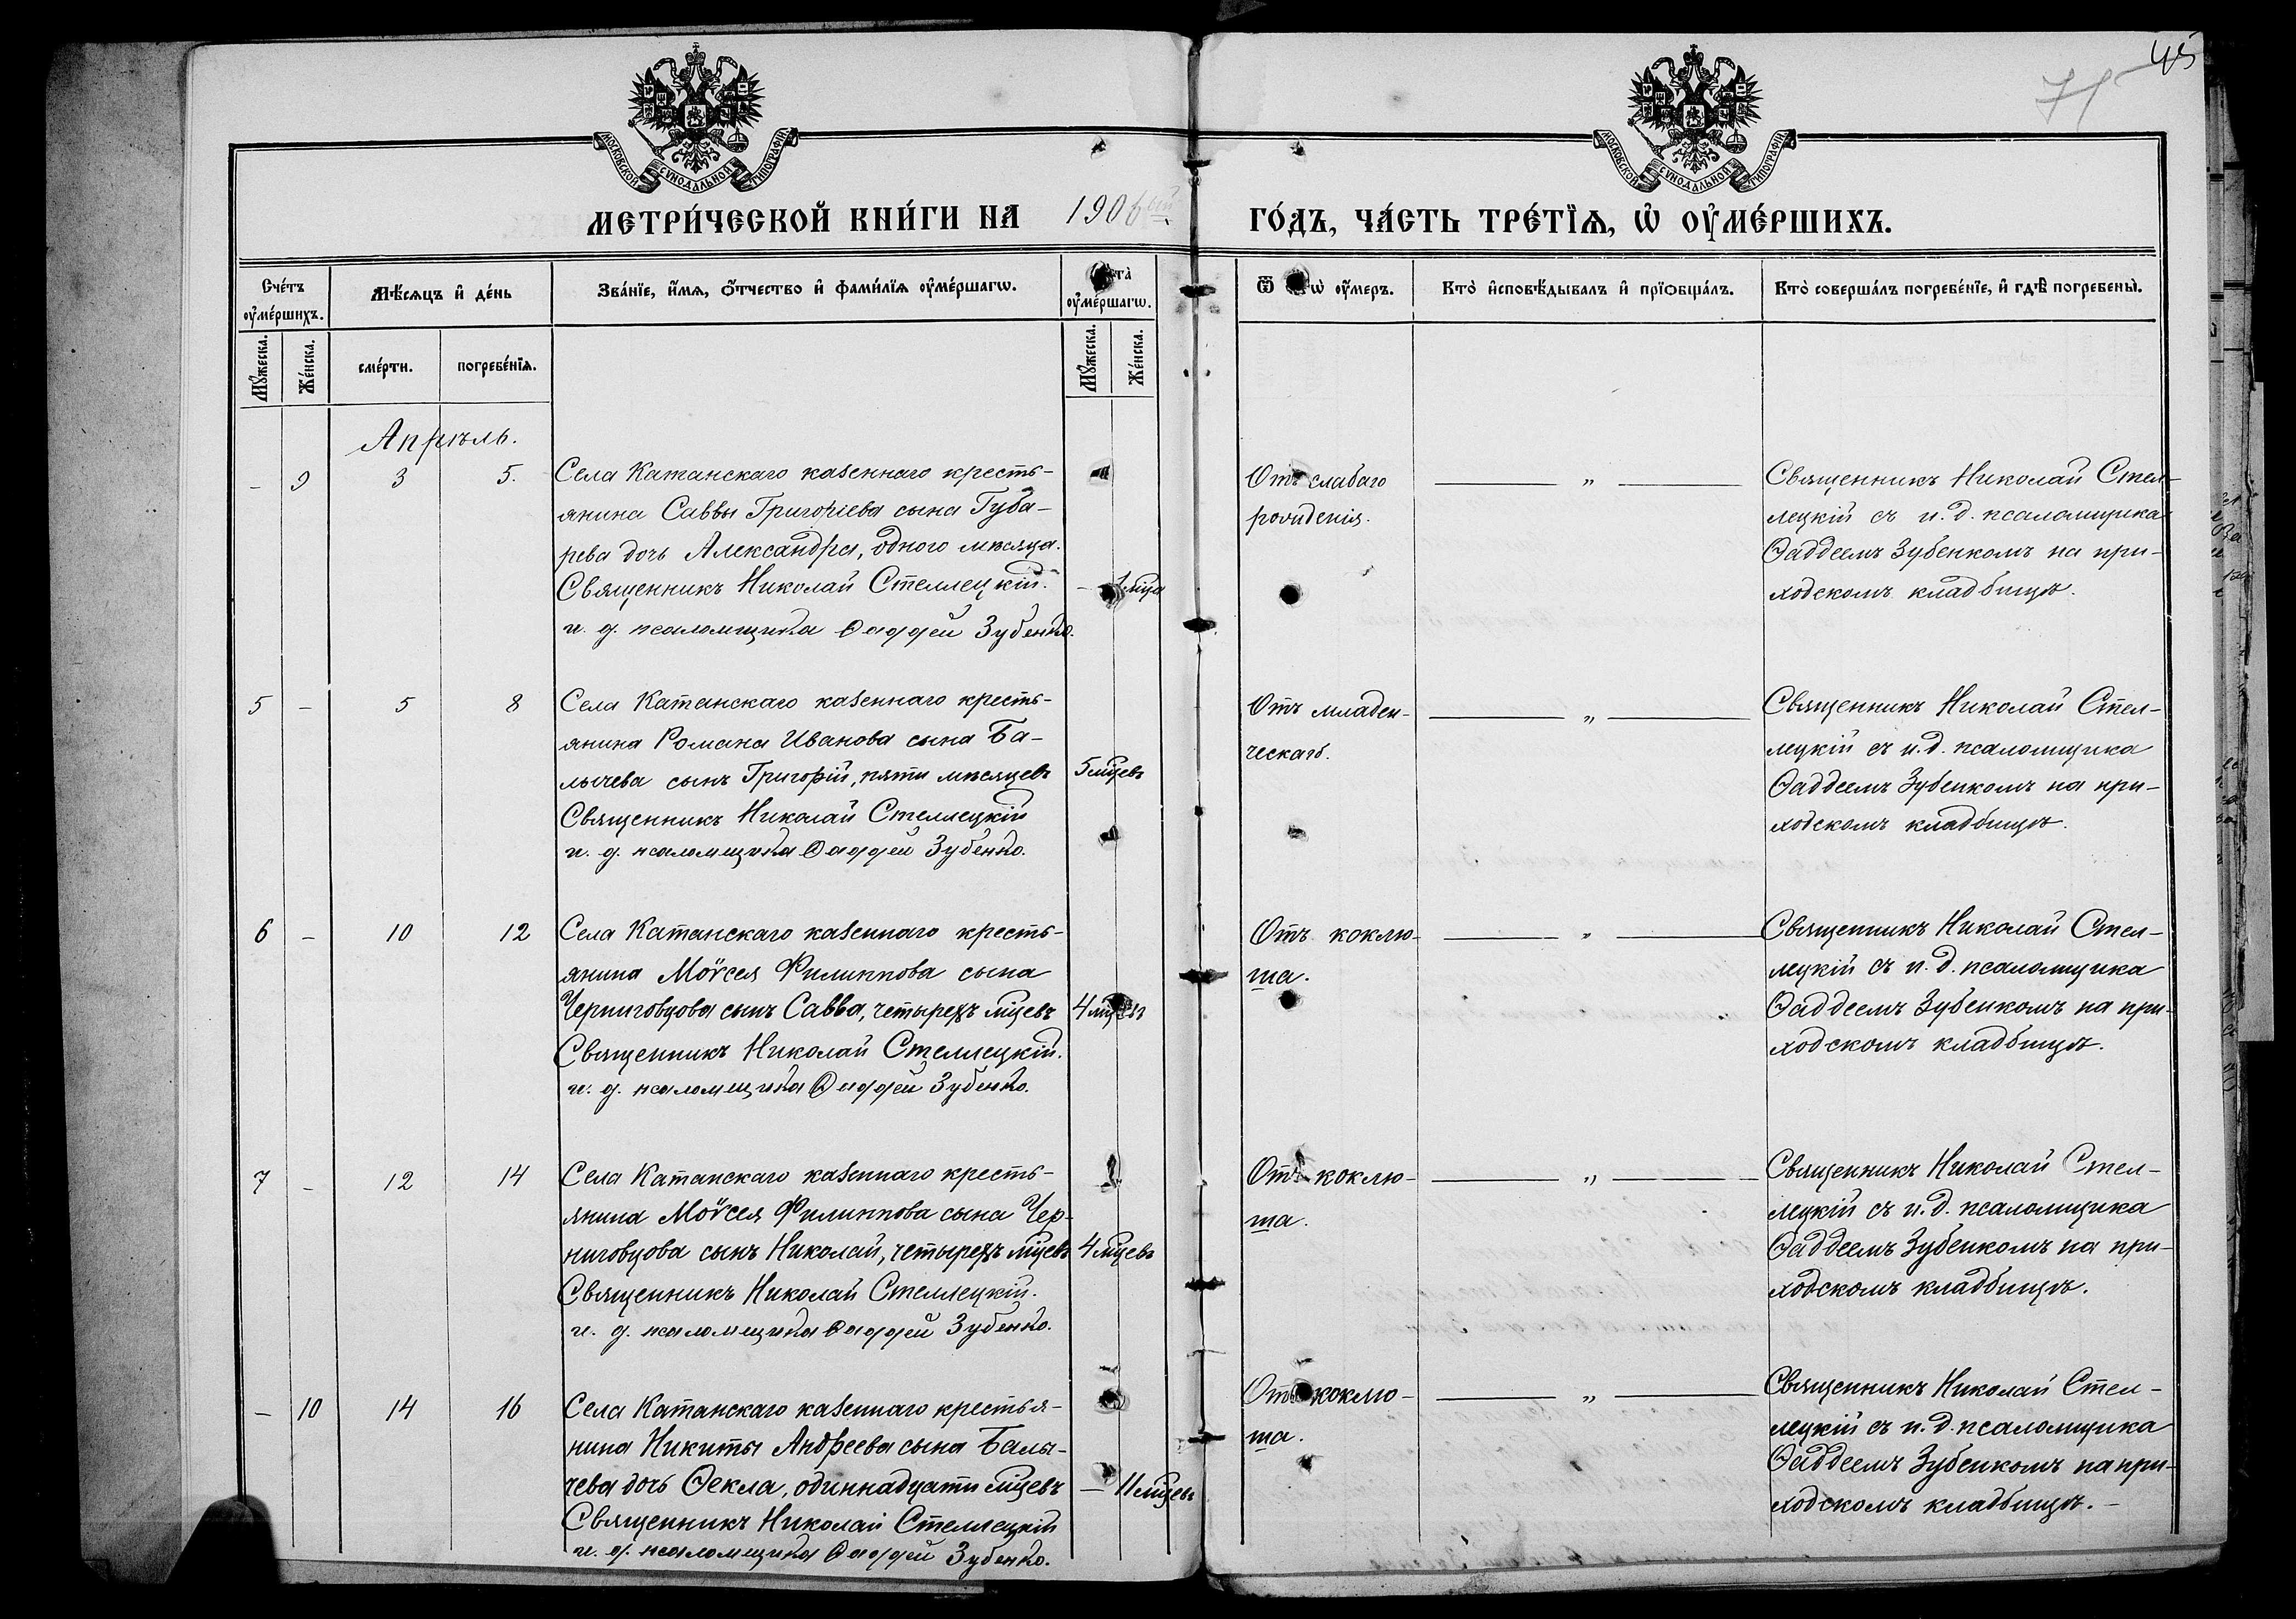 45
71
МОСКОВСКОЙ СѴНОДАЛЬНОЙ ТИПОГРАФІИ
МОСКОВСКОЙ СѴНОДАЛЬНОЙ ТИПОГРАФІИ
МЕТРИ́ЧЕСКОЙ КНИ́ГИ НА 1906 ГО́ДЪ, ЧА́СТЬ ТРЕ́ТІЯ, Ѡ ОУМЕ́РШИХЪ.
Сче́тъ оуме́ршихъ.
Мѣ́сяцъ и де́нь
Зва́ніе, и́мя, о́тчество и фами́лія оуме́ршагѡ.
оуме́ршагѡ.
Ѿ оу́меръ.
Кто̀ исповѣ́дывалъ и пріѡбща́лъ.
Кто̀ соверша́лъ погребе́ніе, и гдѣ̀ погребены̀.
Му́жеска.
Же́нска.
сме́рти.
погребе́нія.
Му́жеска.
Же́нска.
Апрѣль.
– 9 3 5. Села Катанскаго казеннаго кресть-
янина Саввы Григоріева сына Губа-
рева дочь Александра, одного мѣсяца.
Священникъ Николай Стеллецкій.
и. д. псаломщика Ѳаддей Зубенко.
Отъ слабаго
рожденія.
„
Священникъ Николай Стел-
лецкій съ и. д. псаломщика
Ѳаддеемъ Зубенкомъ на при-
ходскомъ кладбищѣ.
5 – 5 8 Села Катанскаго казеннаго кресть-
янина Романа Иванова сына Ба-
лычева сынъ Григорій, пяти мѣсяцевъ 5 мцевъ
Священникъ Николай Стеллецкій
и. д. псаломщика Ѳаддей Зубенко.
Отъ младен-
ческаго.
„
Священникъ Николай Стел-
лецкій съ и. д. псаломщика
Ѳаддеемъ Зубенкомъ на при-
ходскомъ кладбищѣ.
6 – 10 12 Села Катанскаго казеннаго кресть-
янина Моѵсея Филиппова сына
Черниговцова сынъ Савва, четырехъ мцевъ 4
Священникъ Николай Стеллецкій.
и. д. псаломщика Ѳаддей Зубенко.
Отъ коклю-
ша.
„
Священникъ Николай Стел-
лецкій съ и. д. псаломщика
Ѳаддеемъ Зубенкомъ на при-
ходскомъ кладбищѣ.
7 – 12 14 Села Катанскаго казеннаго кресть-
янина Моѵсея Филиппова сына Чер-
ниговцова сынъ Николай, четырехъ мцевъ 4 мцевъ
Священникъ Николай Стеллецкій.
и. д. псаломщика Ѳаддей Зубенко.
Отъ коклю-
ша.
„
Священникъ Николай Стел-
лецкій съ и. д. псаломщика
Ѳаддеемъ Зубенкомъ на при-
ходскомъ кладбищѣ.
– 10 14 16 Села Катанскаго казеннаго крестья-
нина Никиты Андреева сына Балы-
чева дочь Ѳекла, одиннадцати мцевъ – 11 мцевъ
Священникъ Николай Стеллецкій
и. д. псаломщика Ѳаддей Зубенко.
Отъ коклю-
ша.
„
Священникъ Николай Стел-
лецкій съ и. д. псаломщика
Ѳаддеемъ Зубенкомъ на при-
ходскомъ кладбищѣ. –